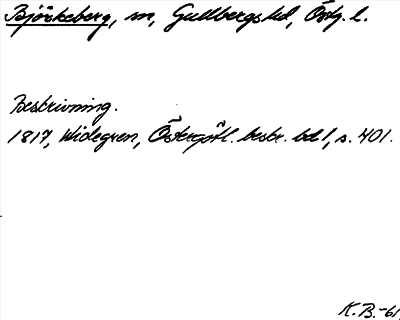 Björkeberg, sn, Gullbergs hd, Östg. l.
Beskrivning.
1817, Widegren, Östergötl. beskr. bd 1, s. 401.
K.B.-61